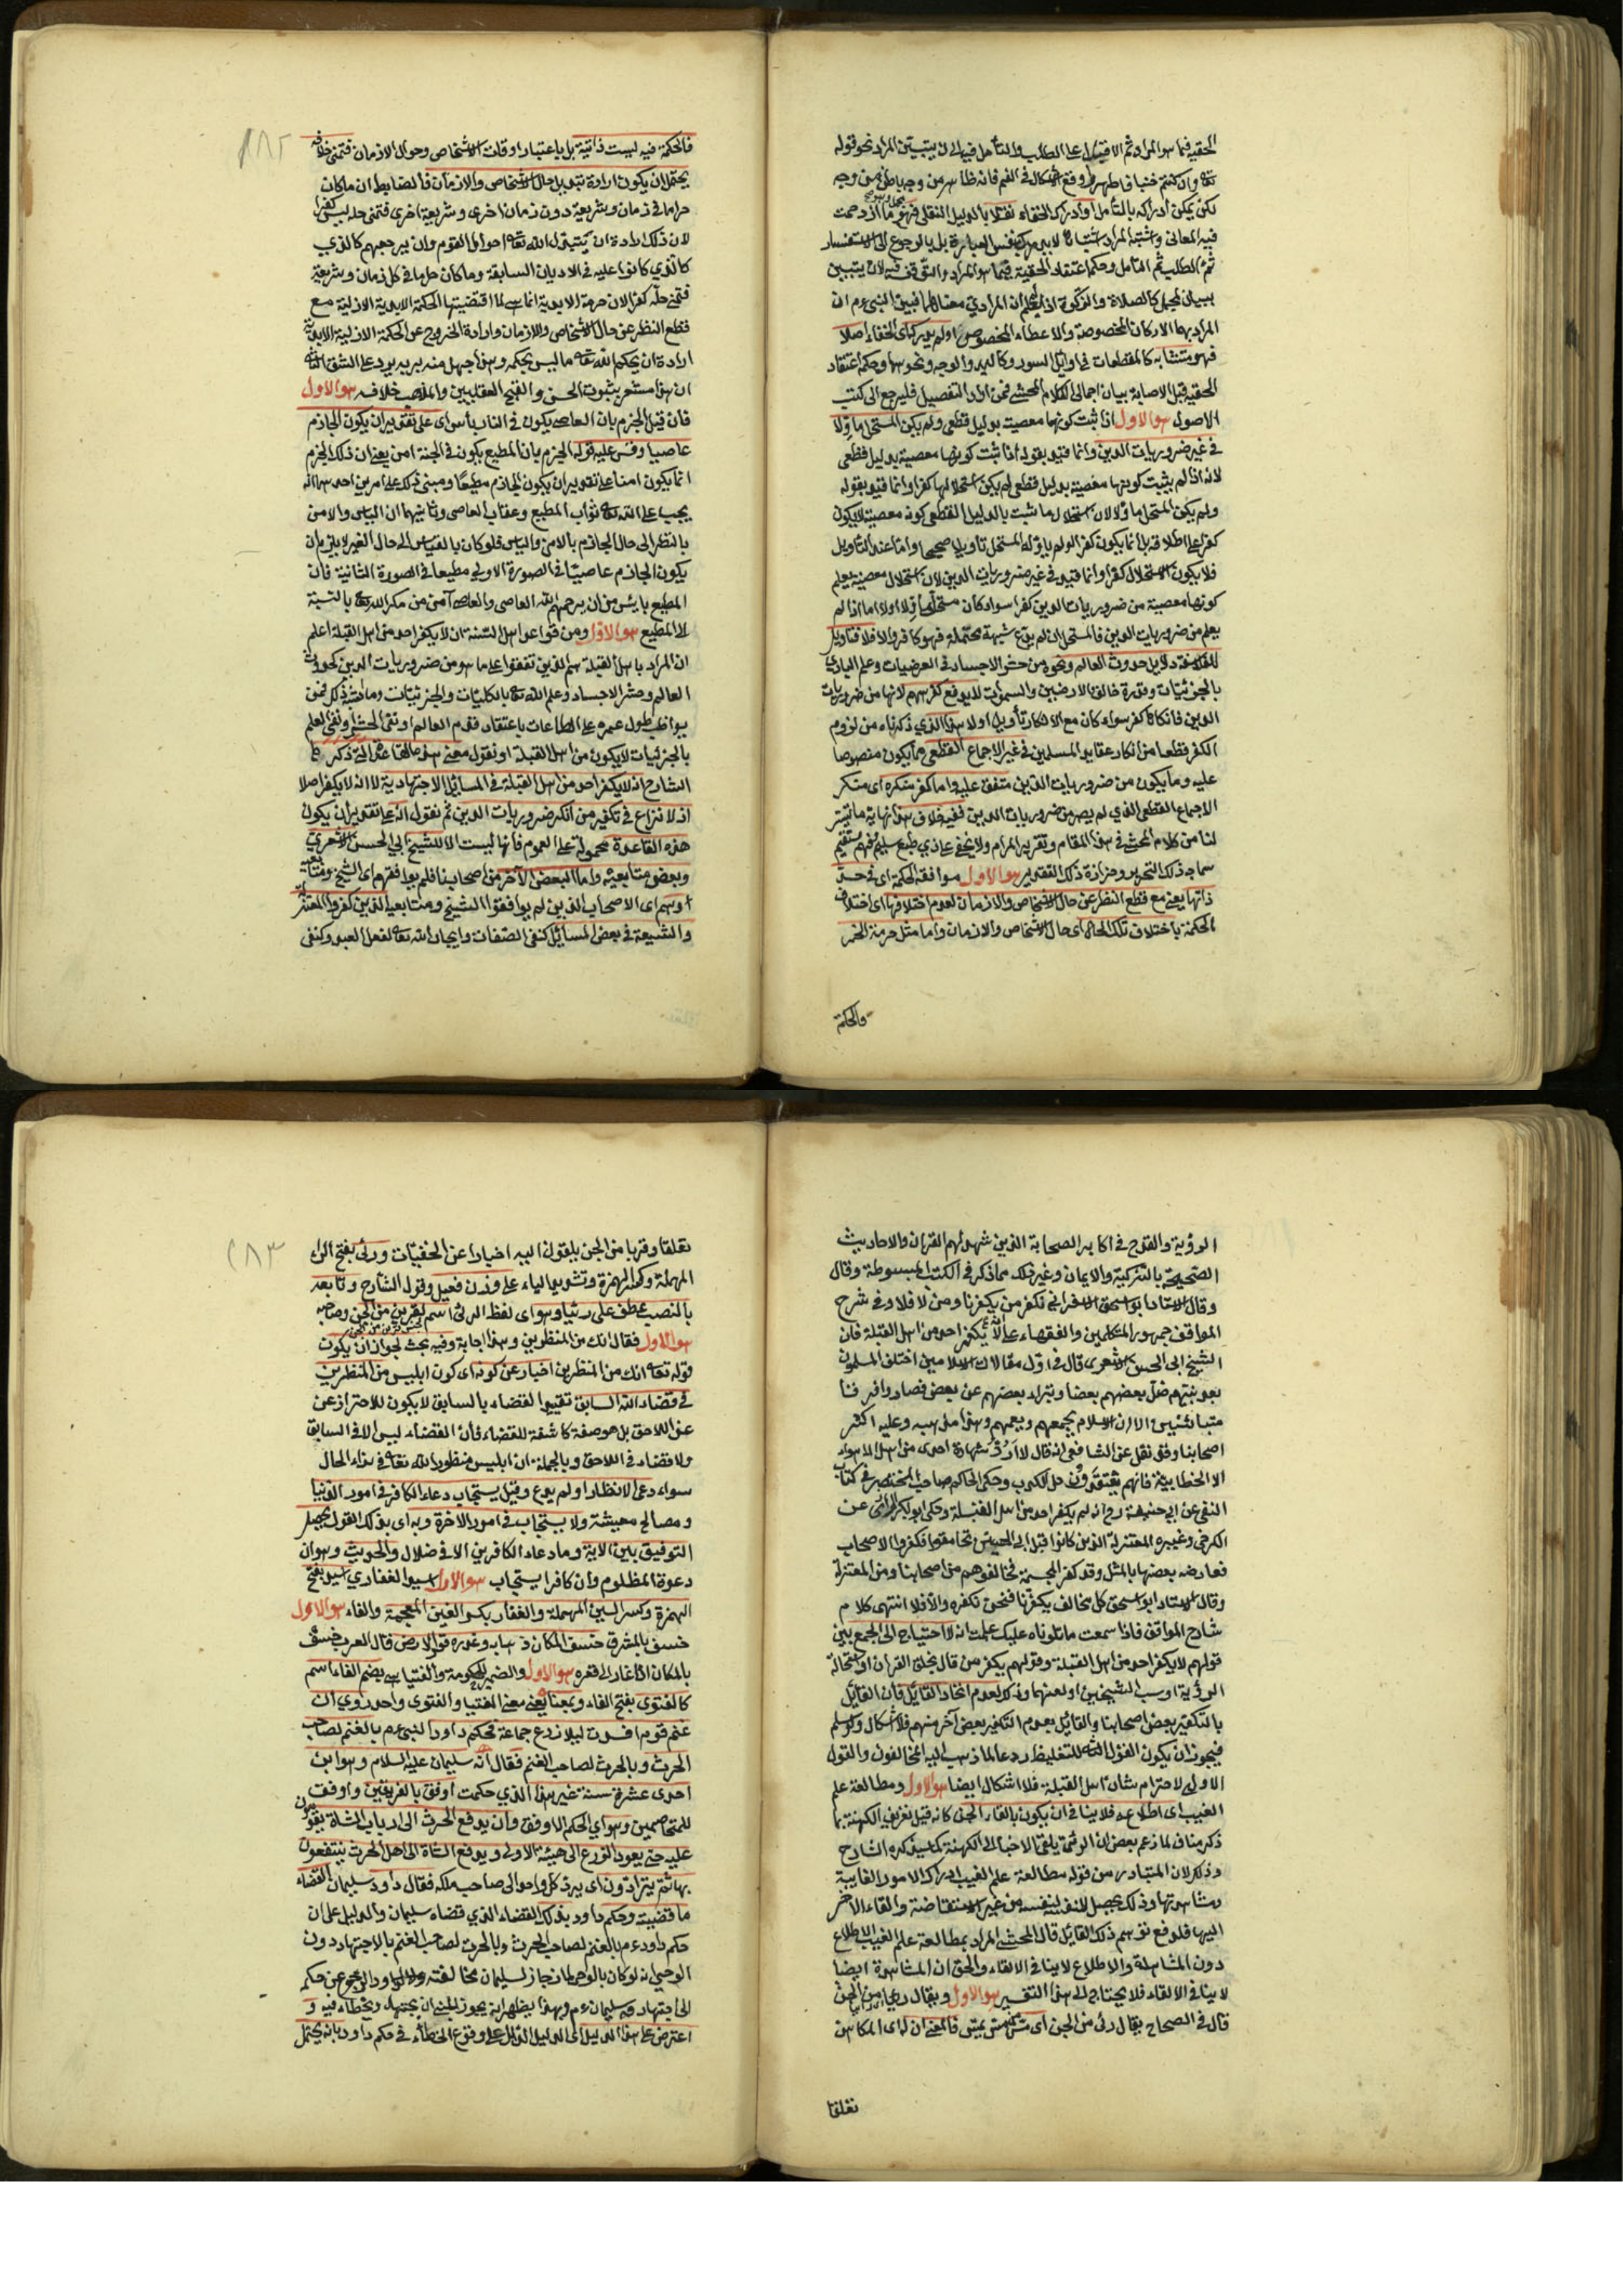 الحقية فيما هو المراد ثم الاقبال على الطلب والتأمل فيه الى ان يتبين المراد نحو قوله
تعالى وان كنتم جنبا فاطهروا وقع اشكال في الفم فانه ظاهر من وجه باطن من وجه
لكن يمكن ادراكه بالتأمل او ادراك الخفاء نقلا بالدليل النقلي فهو مجمل وهو ما ازدحمت
فيه المعاني واشتبه المراد اشتباها لا يدرك بنفس العبارة بل بالرجوع الى الاستفسار
ثم الطلب ثم التأمل وحكمه اعتقاد الحقية فيما هو المراد والتوقف فيه لان يتبين
ببيان المجمل كالصلاة والزكوة اذ لم يعلم ان المراد اي معناهما فبين النبي ءم ان
المراد بهما الاركان المخصوصة والاعطاء المخصوص او لم يدرك اي الخفاء اصلا
فهو متشابه كالمقطعات في اوائل السور وكاليد والوجه ونحوها وحكمه اعتقاد
الحقية قبل الاصابة بيان اجمالي لكلام المحشي فمن اراد التفصيل فليرجع الى كتب
الاصول هو الاول اذا ثبت كونها معصية بدليل قطعي ولم يكن المستحل مأولا
في غير ضروريات الدين وانما قيد بقوله اذا ثبت كونها معصية بدليل قطعي
لانه اذا لم يثبت كونها معصية بدليل قطعي لم يكن استحلالها كفرا وانما قيد بقوله
ولم يكن المستحل مأولا لان استحلال ما ثبت بالدليل القطعي كونه معصية لا يكون
كفرا على اطلاقه بل انما يكون كفرا لو لم يأوله المستحل تأويلا صحيحا واما عند التأويل
فلا يكون الاستحلال كفرا وانما قيد في غير ضروريات الدين لان استحلال معصية يعلم
كونها معصية من ضروريات الدين كفر سواء كان مستحلها مأولا او لا اما اذا لم
يعلم من ضروريات الدين فالمستحل ان لم يدع شبهة محتملة فهو كافر والا فلا فتأويل
الفلاسفة دلايل حدوث العالم ونحوه من حشر الاجساد في العرضيات وعلم الباري
بالجزئيات وقدرة خالق الارضين والسموات لا يدفع كفرهم لانها من ضروريات
الدين فانكارها كفر سواء كان مع الانكار تأويل او لا هذا الذي ذكرناه من لزوم
الكفر قطعا من انكار عقايد المسلمين في غير الاجماع القطعي مما يكون منصوصا
عليه وما يكون من ضروريات الدين متفق عليه واما كفر منكره اي منكر
الاجماع القطعي الذي لم يصر من ضروريات الدين ففيه خلاف هذا نهاية ما تيسر
لنا من كلام المحشي في هذا المقام وتقرير المرام ولا يخفى على ذي طبع سليم فهم مستقيم
سماجة ذلك التحرير وحزازة ذلك التقدير هو الاول موافقة الحكمة اي في حد
ذاتها يعني مع قطع النظر عن حال الاشخاص والازمان لعدم اختلافها اي اختلاف
الحكمة باختلاف تلك الحال اي حال الاشخاص والازمان واما مثل حرمة الخمر
فالحكمة
فالحكمة فيه ليست ذاتية بل باعتبار اوقات الاشخاص وحوال الازمان فتمنى خلافه
يحتمل ان يكون ارادة تبديل حال الاشخاص والازمان فالضابط ان ما كان
حراما في زمان وشريعة دون زمان اخرى وشريعة اخرى فتمني حله ليس كفرا
لان ذلك ارادة ان يتبدل الله تعالى احوال القوم وان يرجعهم كالذي
كالذي كانوا عليه في الاديان السابقة وما كان حراما في كل زمان وشريعة
فتمني حله كفر لان حرمة الابدية انما هي لما اقتضيتها الحكمة الابدية الازلية مع
قطع النظر عن حال الاشخاص والازمان وارادة الخروج عن الحكمة الازلية الابدية
ارادة ان يحكم الله تعالى ما ليس بحكمه وهذا جهل منه بربه يرد على الشق الثاني
ان هذا مستعر بثبوت الحسن والقبح العقليين والمذهب خلافه هو الاول
فان قيل الجزم بان العاصي يكون في النار يأس اي على تقدير ان يكون الجازم
عاصيا وقس عليه قوله الجزم بان المطيع يكون في الجنة امن يعني ان ذلك الجزم
انما يكون امنا على تقدير ان يكون الجازم مطيعا ومبنى ذلك على امرين احدهما انه
يجب على الله تعالى ثواب المطيع وعقاب العاصي وثانيهما ان اليأس والامن
بالنظر الى حال الجازم بالامن واليأس فلو كان بالقياس الى حال الغير لا يلزم ان
يكون الجازم عاصيا في الصورة الاولى مطيعا في الصورة الثانية فان
المطيع يايس من ان يرحم الله العاصي والعاصي آمن من مكر الله تعالى بالنسبة
الى المطيع هو الاول ومن قواعد اهل السنة ان لا يكفر احد من اهل القبلة اعلم
ان المراد باهل القبلة هم الذين اتفقوا على ما هو من ضروريات الدين كحدوث
العالم وحشر الاجساد وعلم الله تعالى بالكليات والجزئيات وما اشبه ذلك فمن
يواظب طول عمره على الطاعات باعتقاد قدم العالم او نفي الحشر او نفي العلم
بالجزئيات لا يكون من اهل القبلة او نقول معنى هذه القاعدة التي ذكرها
الشارح انه لا يكفر احد من اهل القبلة في المسائل الاجتهادية لا انه لا يكفر اصلا
اذ لا نزاع في تكفير من انكر ضروريات الدين ثم نقول انه على تقدير ان يكون
هذه القاعدة محمولة على العموم فانها ليست الا للشيخ ابي الحسن الاشعري
وبعض متابعيه واما البعض الآخر من اصحابنا فلم يوافقهم اي الشيخ ومتابعيه
وهم اي الاصحاب الذين لم يوافقوا الشيخ ومتابعيه الذين كفروا المعتزلة
والشيعة في بعض المسائل كنفي الصفات وايجاد الله تعالى لفعل العبد وكنفي
الرؤية والقدح في اكابر الصحابة الذين شهد لهم القرآن والاحاديث
الصحيحة بالتزكية والايمان وغير ذلك مما ذكر في الكتب المبسوطة وقال
وقال الاستاد ابو اسحق الاسفرايني نكفر من يكفرنا ومن لا فلا وفي شرح
المواقف جمهور المتكلمين والفقهاء على انه لا يكفر احد من اهل القبلة فان
الشيخ ابي الحسن الاشعري قال في اول مقالات الاسلاميين اختلف المسلمون
بعد نبيهم ضلل بعضهم بعضا وتبراء بعضهم عن بعض فصاروا فرقا
متباينين الا ان الاسلام يجمعهم ويعمهم وهذا مذهبه وعليه اكثر
اصحابنا وقد نقل عن الشافعي انه قال لا ارد شهادة احد من اهل الاهواء
الا الخطابية فانهم يعتقدون حل الكذب وحكى الحاكم صاحب المختصر في كتاب
النفي عن ابي حنيفة رح انه لم يكفر احد من اهل القبلة وحكى ابو بكر الرازي عن
الكرخي وغيره المعتزلة الذين كانوا قبل ابي الحسين تحامقوا فكفروا الاصحاب
فعارضه بعضنا بالمثل وقد كفر المجسمة مخالفوهم من اصحابنا ومن المعتزلة
وقال الاستاد ابو اسحق كل مخالف يكفرنا فنحن نكفره والا فلا انتهى كلام
شارح المواقف فاذا سمعت ما تلوناه عليك علمت انه لا احتياج الى الجمع بين
قولهم لا يكفر احد من اهل القبلة وقولهم يكفر من قال بخلق القرآن او استحالة
الرؤية او سب الشيخين او لعنهما وذلك لعدم اتحاد القائل فان القائل
بالتكفير بعض اصحابنا والقائل بعدم التكفير بعض آخر منهم فلا اشكال ولو سلم
فيجوز ان يكون القول الثاني للتغليظ ردعا لما ذهب اليه المخالفون والقول
الاولى لاحترام شان اهل القبلة فلا اشكال ايضا هو الاول ومطالعة علم
الغيب اي اطلاعه فلا ينافي ان يكون بالقاء الجن كانه قيل تعريف الكهنة بما
ذكر مناف لما زعم بعض ان الرئي يلقي الاخبار الى الكهنة كما سيذكره الشارح
وذلك لان المتبادر من قوله مطالعة علم الغيب ادراك الامور الغايبة
ومشاهدتها وذلك يحصل للنفس بنفسه من غير استفاضة والقاء الآخر
اليها فلدفع توهم ذلك القائل قال المحشي المراد بمطالعة علم الغيب الاطلاع
دون المشاهدة والاطلاع لا ينافي الالقاء والحق ان المشاهدة ايضا
لا ينافي الالقاء فلا يحتاج الى هذا التفسير هو الاول ويقال رءيا من الجن
قال في الصحاح يقال رئي من الجن اي مس فالمعنى ان له اي للكاهن
تعلقا
تعلقا وقربا من الجن يلقون اليه اخبارا عن الخفيات ورئي بفتح الراء
المهملة وكسر الهمزة وتشديد الياء على وزن فعيل وقول الشارح وتابعه
بالنصب عطف على رئيا وهو اي لفظ الرئي اسم لقرين من الجن وصاحبه
هو الاول فقال انك من المنظرين وهذا اجابة وفيه بحث لجواز ان يكون
قوله تعالى انك من المنظرين اخبار عن كونه اي كون ابليس من المنظرين
في قضاء الله السابق تقييد القضاء بالسابق لا يكون للاحتراز عن
عن اللاحق بل هو صفة كاشفة للقضاء فان القضاء ليس الا في السابق
ولا قضاء في اللاحق وبالجملة ان ابليس منظور الله تعالى في هذه الحال
سواء دعى الانظار او لم يدع وقيل يستجاب دعاء الكافر في امور الدنيا
ومصالح معيشته ولا يستجاب في امور الاخرة وبه اي بذلك القول يحصل
التوفيق بين الاية وما دعاء الكافرين الا في ضلال والحديث وهو ان
دعوة المظلوم وان كافرا يستجاب هو الاول اسيد الغفاري اسيد بفتح
الهمزة وكسر السين المهملة والغفار بكسر الغين المعجمة والفاء هو الاول
خسف بالمشرق خسف المكان ذهابه وغوره قول الارض قال العرب خسف
بالمكان اذا غار الى قعره هو الاول والضمير للحكومة والفتيا هي بضم الفاء اسم
كالفتوى بفتح الفاء وبمعناه يعني معنى الفتيا والفتوى واحد روي ان
غنم قوم افسدت ليلا زرع جماعة فحكم داود النبي ءم بالغنم لصاحب
الحرث وبالحرث لصاحب الغنم فقال ابنه سليمان عليه السلام وهو ابن
احدى عشرة سنة غير هذا الذي حكمت اوفق بالفريقين واوفق
للمتخاصمين وهو اي الحكم الاوفق وان يدفع الحرث الى ارباب الشاة يقومون
عليه حتى يعود الزرع الى هيئته الاولى ويدفع الشاة الى اهل الحرث ينتفعون
بها ثم يترادون اي يرد كل واحد الى صاحب ملكه فقال داود سليمان القضاء
ما قضيت وحكم داود بذلك القضاء الذي قضاه سليمان والدليل على ان
حكم داود ءم بالغنم لصاحب الحرث وبالحرث لصاحب الغنم بالاجتهاد دون
الوحي انه لو كان بالوحي لما جاز لسليمان مخالفته ولا لداود الرجوع عن حكم
الى اجتهاد سليمان ءم وبهذا يظهر انه يجوز للنبي ان يجتهد ويخطاء فيه و
اعترض على هذا الدليل اي الدليل الدال على وقوع الخطأ في حكم داود بانه يحتمل